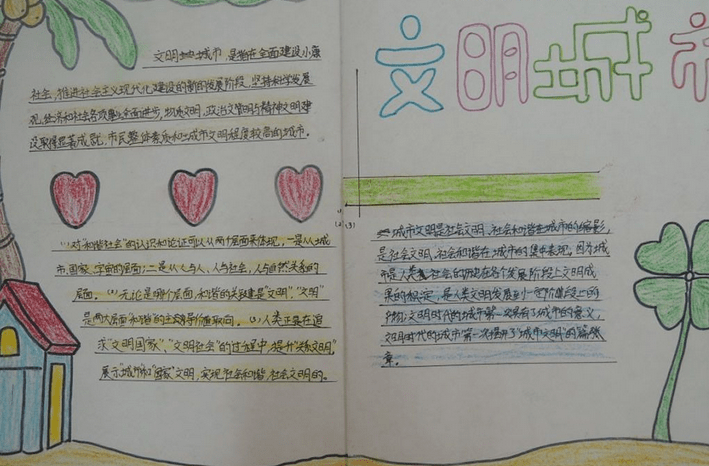 文明城市，是指在全面建设小康
社会，推进社会主义现代化建设的新的发展阶段，坚持科学发展
观，经济和社会各项事业全面进步，物质文明，政治文明与精神文明建
设取得显著成就，市民整体素质和城市文明程度较高的城市。
(1)对"和谐社会"的认识和论证可以从两个层面来体现，一是从城
市、国家、宇宙的层面；二是从人与人，人与社会，人与自然关系的
层面。无论是哪个层面，和谐的关键是"文明"，"文明"
是两大层面和谐的主导价值取向。人类正要在追
求"文明国家"，"文明社会"的过程中，提升文明，
展示城市和"国家"文明，实现社会和谐，社会文明的。
文明城市
城市文明是社会文明、社会和谐在城市的缩影，
是社会文明，社会和谐在城市的集中表现，因为城
市是人类社会的历史在各个发展阶段上文明成
果的标定，是人类文明发展到一定阶段上的
产物；文明时代的城市第一次具有了城市的意义，
文明时代的城市第一次揭开了"城市文明"的篇
章。